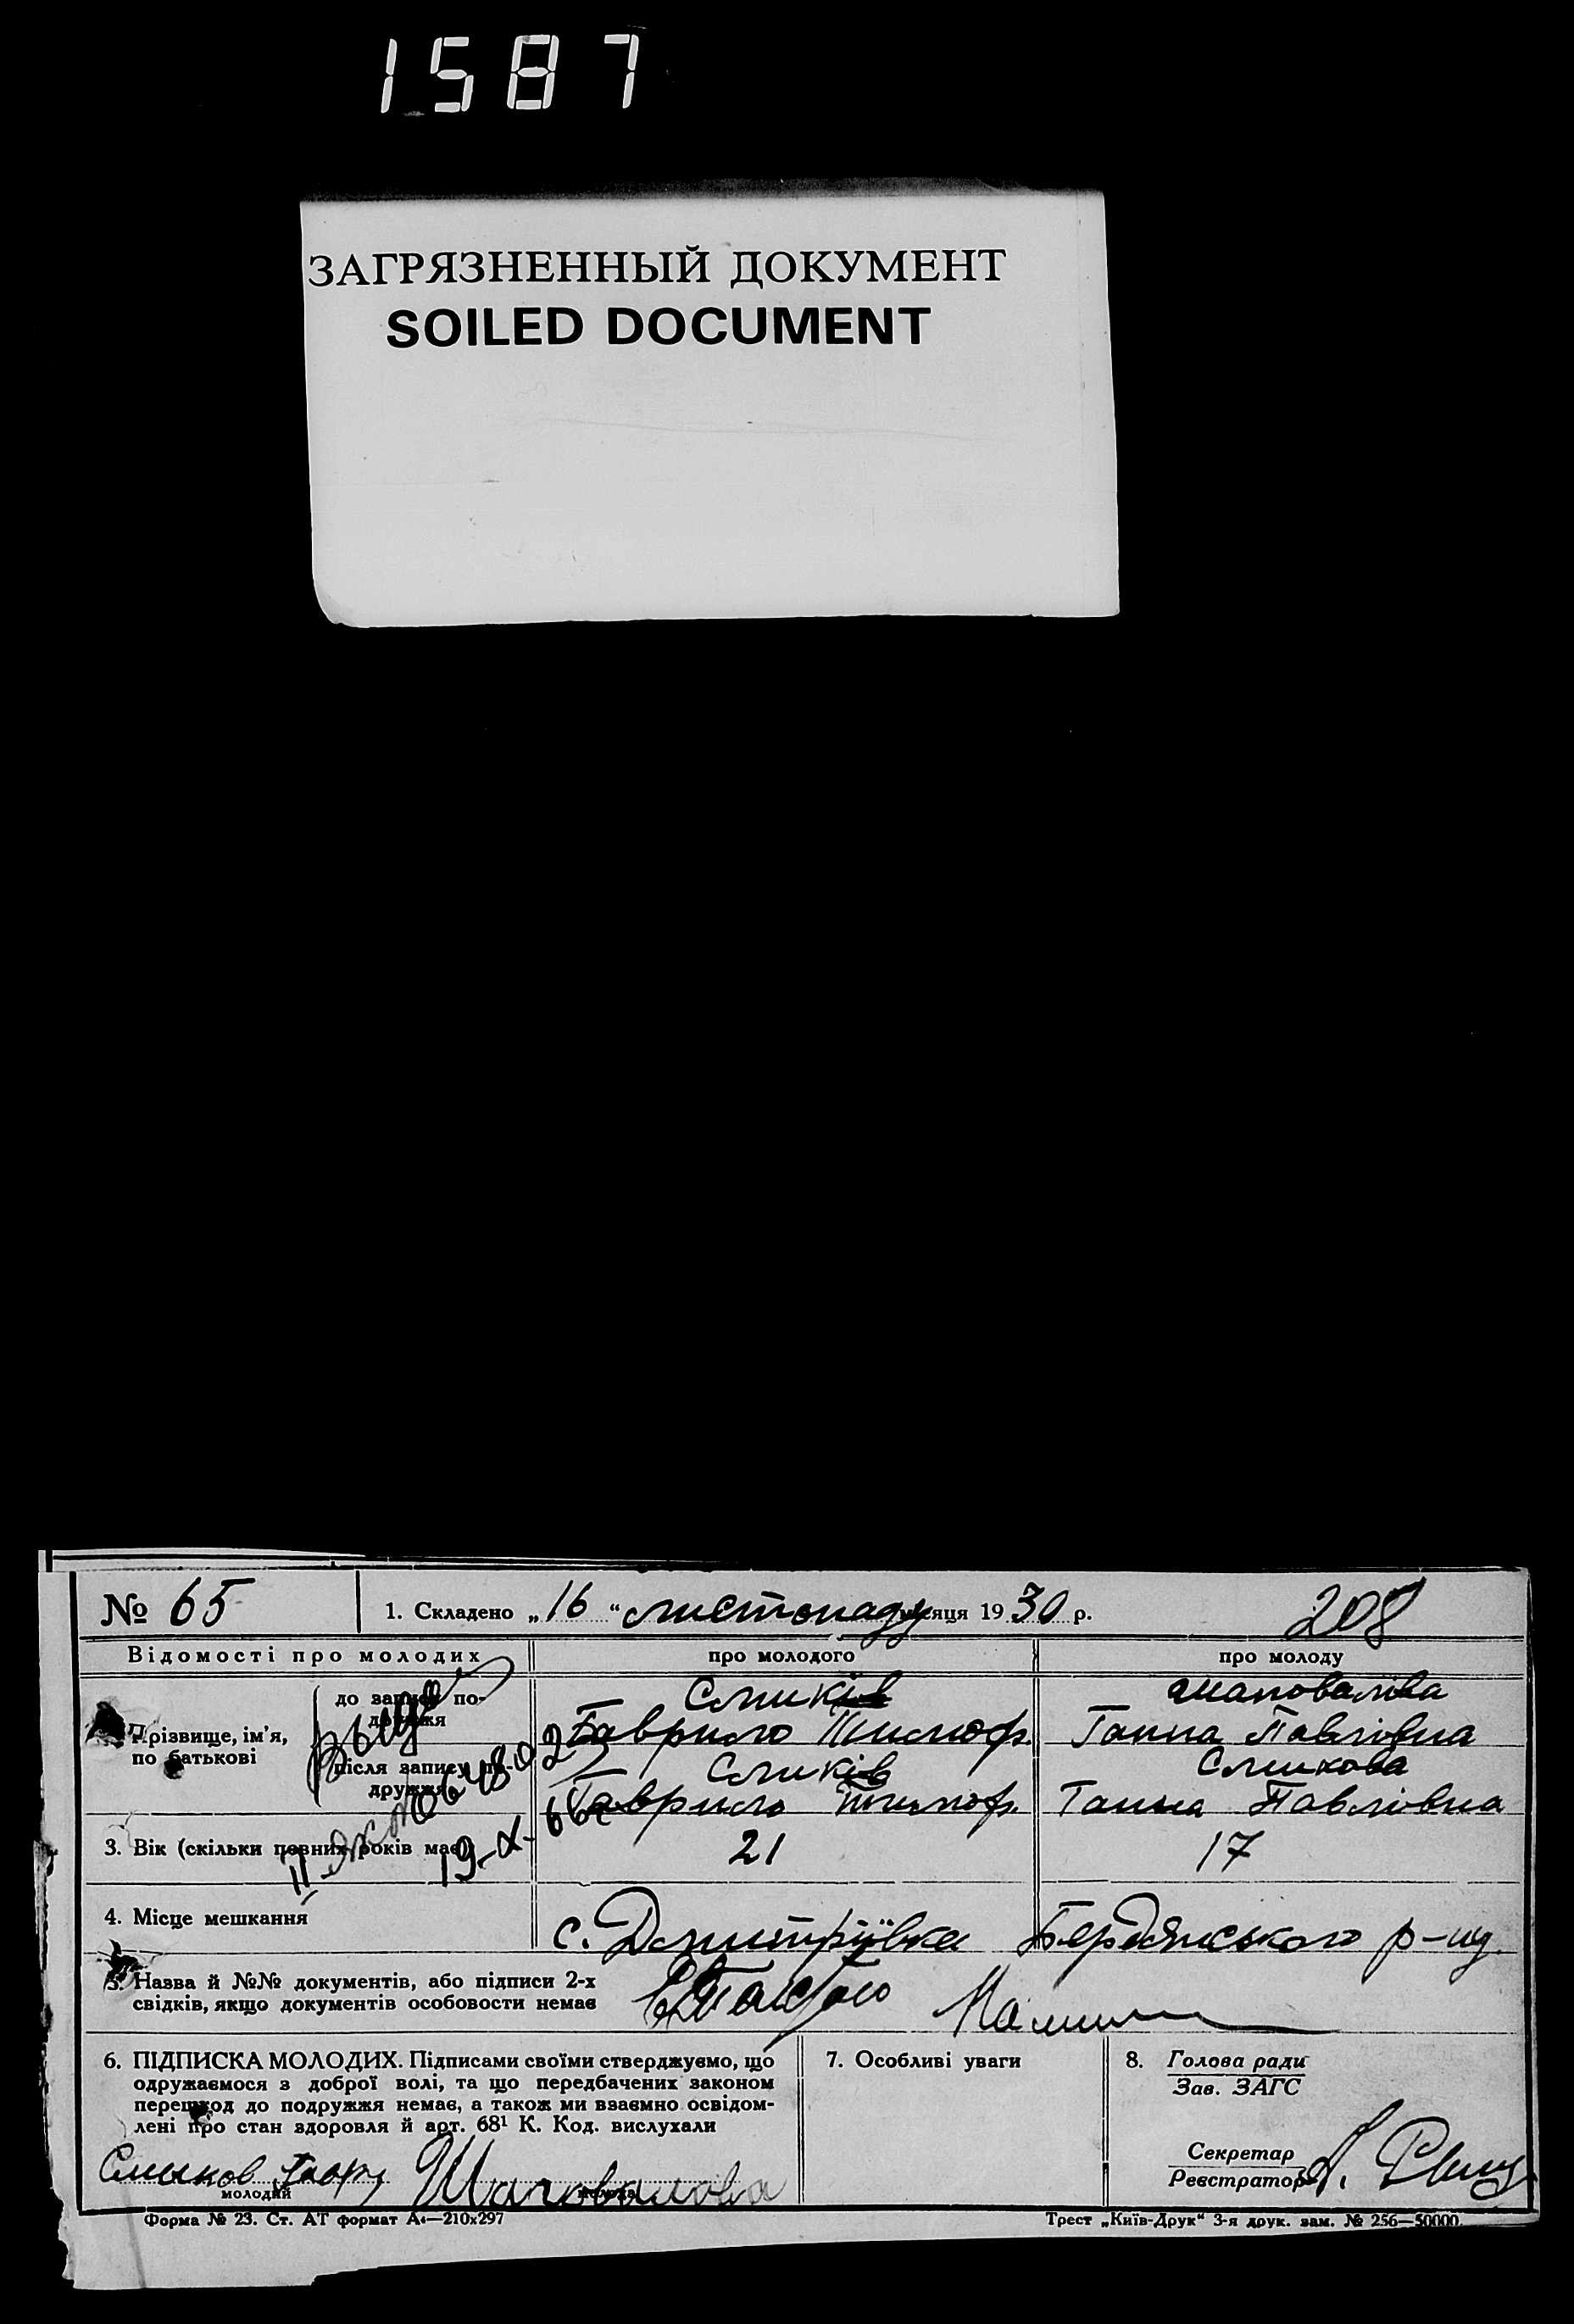 1587
ЗАГРЯЗНЕННЫЙ ДОКУМЕНТ
SOILED DOCUMENT
№ 65
1. Складено „16“ листопаду місяця 1930 р.
208
Відомості про молодих
про молодого
про молоду
Прізвище, ім'я,
по батькові
до запису по-
дружжя
Гаврило Тимоф.
Шаповалова
Ганна Павлівна
після запису по-
дружжя
Гаврило Тимоф.
Сликова
Ганна Павлівна
3. Вік (скільки повних років має)
21
17
4. Місце мешкання
с. Дмитріївка Бердянського р-ну
5. Назва й №№ документів, або підписи 2-х
свідків, якщо документів особовости немає
6. ПІДПИСКА МОЛОДИХ. Підписами своїми стверджуємо, що
одружаємося з доброї волі, та що передбачених законом
перешкод до подружжя немає, а також ми взаємно освідом-
лені про стан здоров'я й арт. 68¹ К. Код. вислухали
Шаповалова
молодий
молода
7. Особливі уваги
8. Голова ради
Зав. ЗАГС
Секретар
Реєстратор
Форма № 23. Ст. АТ формат А4—210x297
Трест „Київ-Друк“ 3-я друк. зам. № 256—50000.